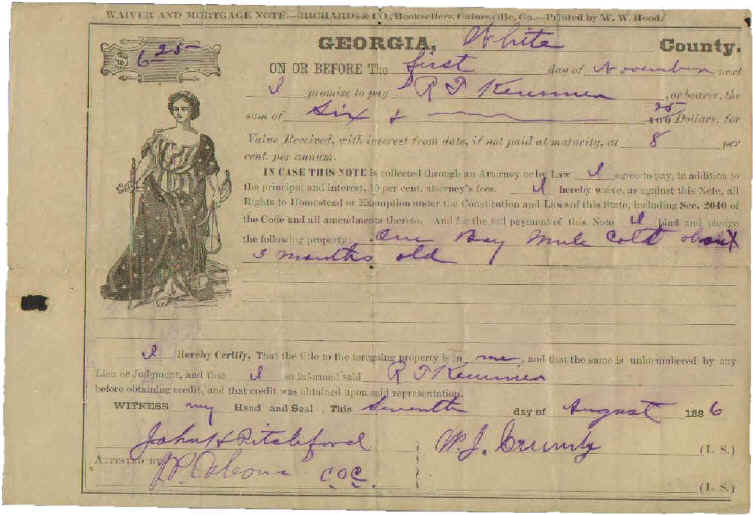 WAIVER AND MORTGAGE NOTE.—RICHARDS & CO., Booksellers, Gainesville, Ga.—Printed by W. W. Hood.
$6 25 GEORGIA, White County.
ON OR BEFORE The first day of November next
I promise to pay R T Kenimer, or bearer, the
sum of Six & 25/100 Dollars, for
Value Received, with interest from date, if not paid at maturity, at 8 per
cent. per annum.
IN CASE THIS NOTE is collected through an Attorney or by Law I agree to pay, in addition to
the principal and interest, 10 per cent. attorney's fees. I hereby waive, as against this Note, all
Rights to Homestead or Exemption under the Constitution and Laws of this State, including Sec. 2040 of
the Code and all amendments thereto. And for the full payment of this Note I bind and pledge
the following property: One Bay Mule Colt about
3 months old
I Hereby Certify, That the title to the foregoing property is in me, and that the same is unincumbered by any
Lien or Judgment, and that I so informed said R T Kenimer
before obtaining credit, and that credit was obtained upon said representation.
WITNESS my Hand and Seal, This Seventh day of August 1886
John H W. J. Crumly (L. S.)
ATTESTED BY J. P. C.O.C. (L. S.)